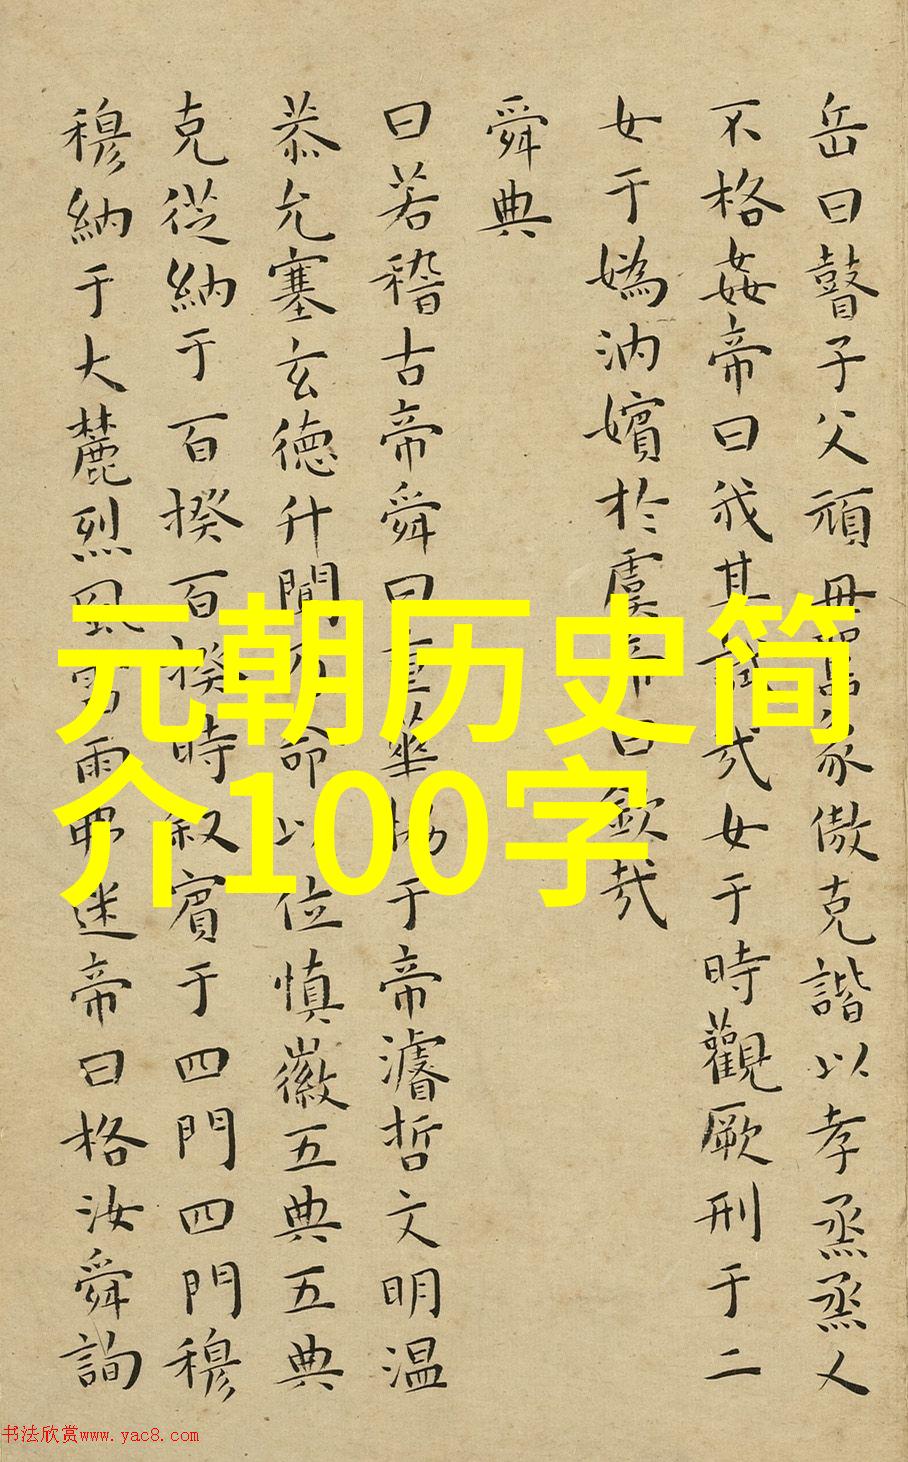 岳曰瞽子父頑母嚚象傲克諧以孝烝烝乂
不格姦帝曰我其試哉女于時觀厥刑于二
女于媯汭嬪於虞帝曰欽哉
舜典
曰若稽古帝舜曰重華協于帝濬哲文明温
恭允塞玄德升聞乃命以位慎徽五典五典
克從納于百揆百揆時叙賓于四門四門穆
穆納于大麓烈風雷雨弗迷帝曰格汝舜詢
元朝历史简
介100字
书法欣赏www.yac8.com